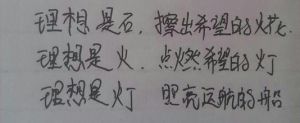 理想是石，擦出希望的火花.
理想是火.点燃希望的灯
理想是灯 照亮远航的船